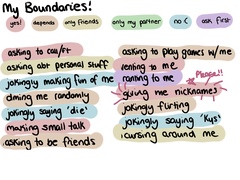 My Boundaries!
yes! depends only friends only my partner no :( ask first
asking to call/FT
asking abt personal stuff
jokingly making fun of me
dming me randomly
jokingly saying 'die'
making small talk
asking to be friends
asking to play games w/ me
venting to me
ranting to me
Please!!
giving me nicknames
jokingly flirting
jokingly saying 'kys'
cursing around me